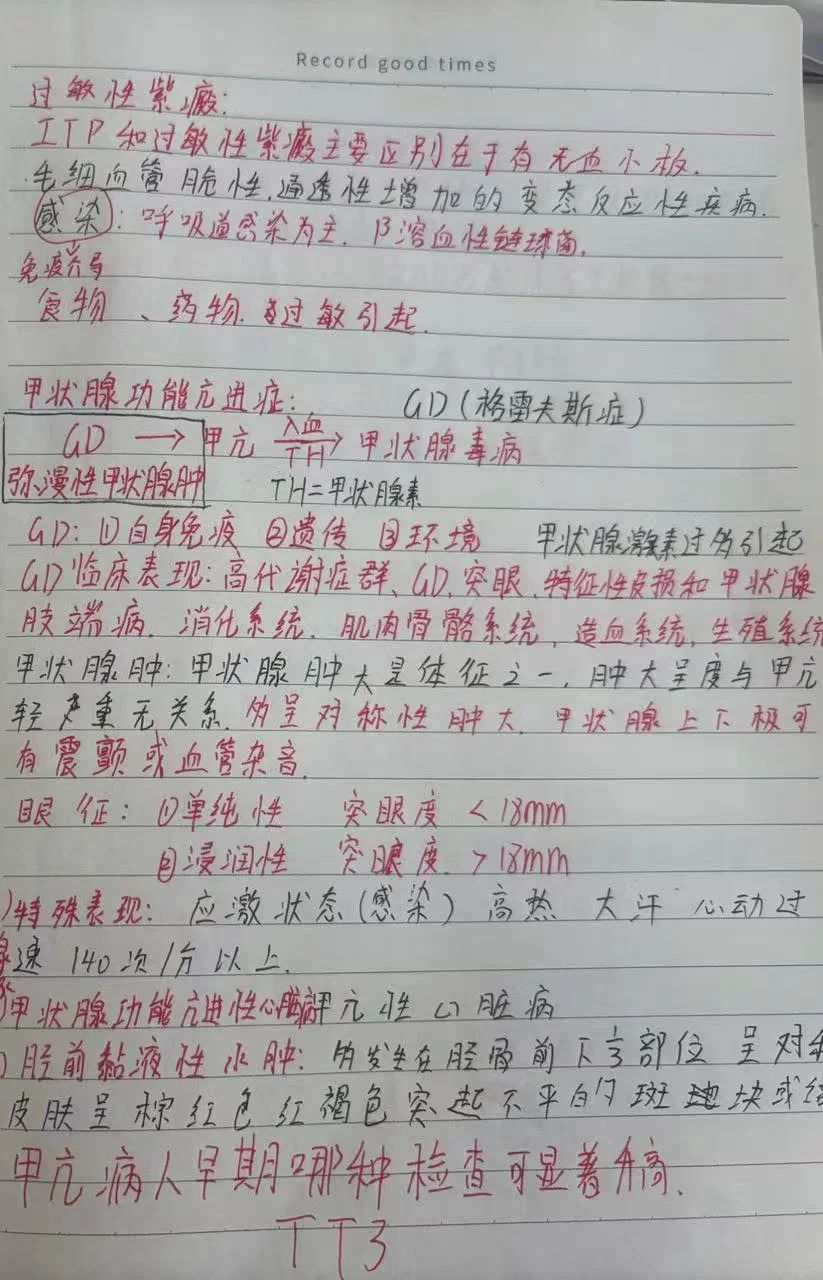 Record good times
过敏性紫癜:
ITP和过敏性紫癜主要区别在于有无血小板.
毛细血管脆性,通透性增加的变态反应性疾病.
感染: 呼吸道感染为主. β溶血性链球菌,
免疫介导
食物、药物.过敏引起.
甲状腺功能亢进症: GD(格雷夫斯症)
GD → 甲亢 入血 TH → 甲状腺毒病
弥漫性甲状腺肿 TH=甲状腺素
GD: ①自身免疫 ②遗传 ③环境 甲状腺激素过多引起
GD临床表现: 高代谢症群、GD.突眼.特征性皮损和甲状腺
肢端病. 消化系统. 肌肉骨骼系统, 造血系统, 生殖系统
甲状腺肿: 甲状腺肿大是体征之一, 肿大呈度与甲亢
轻重无关系.多呈对称性肿大. 甲状腺上下极可
有震颤或血管杂音.
眼征: ①单纯性 突眼度 < 18mm
②浸润性 突眼度. > 18mm
)特殊表现: 应激状态(感染) 高热 大汗 心动过
速 140次/分以上.
)甲状腺功能亢进性心脏病甲亢性心脏病
)胫前黏液性水肿: 多发生在胫骨前下⅓部位 呈对称
皮肤呈棕红色红褐色突起不平的斑块或结
甲亢病人早期哪种检查可显著升高.
TT3